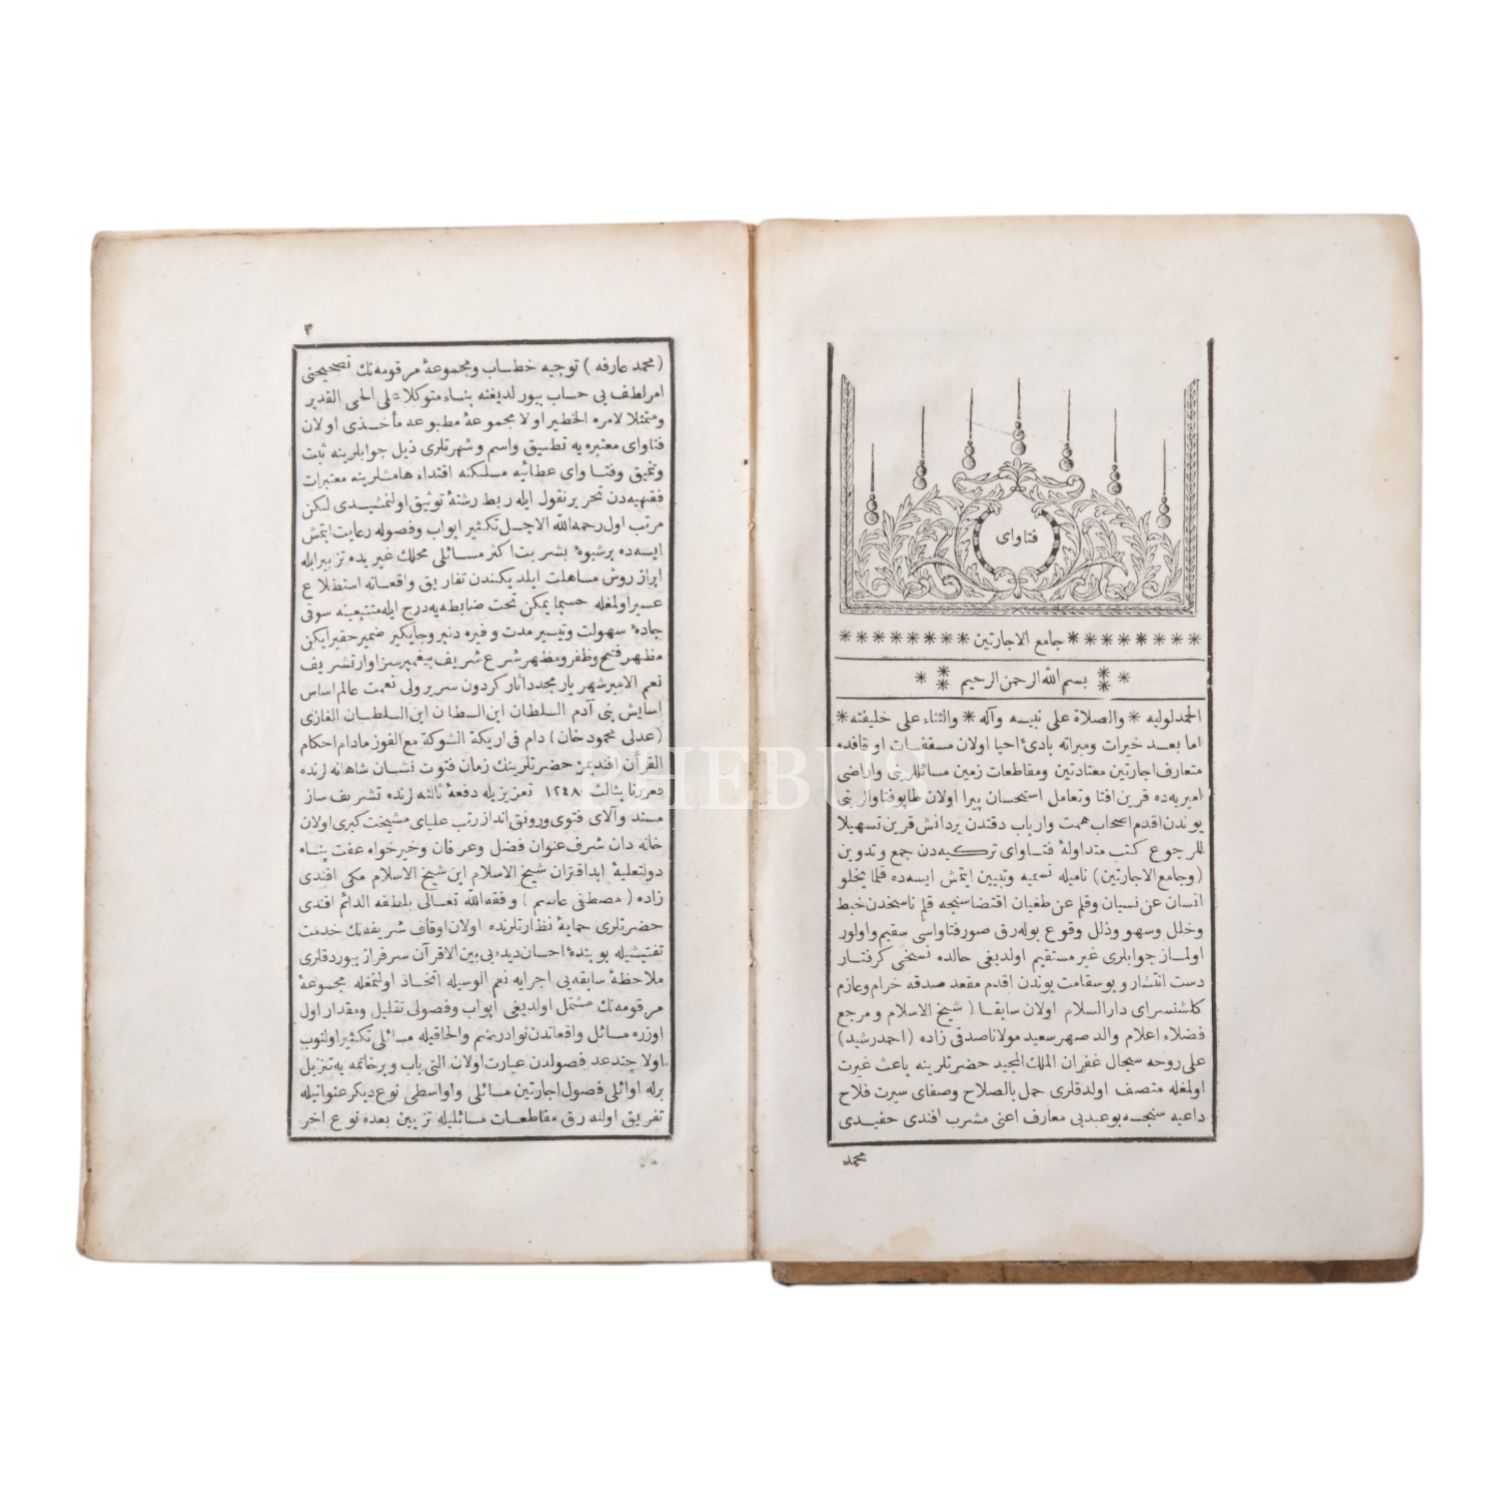 فتاوای
******** جامع الاجارتین ********
* ** بسم الله الرحمن الرحیم ** *
الحمد لولیه * والصلاة علی نبیه وآله * والثناء علی خلیفته *
اما بعد خیرات ومبراته بادیٔ احیا اولان مسقفات اوقافده
متعارف اجارتین معتادتین ومقاطعات زمین مسائللرینی واراضی
امیریه‌ده قرین افتا وتعامل استحسان پیرا اولان طاپو فتاوالرینی
بوندن اقدم اصحاب همت وارباب دقتدن بر دانش قرین تسهیلا
للرجوع کتب متداولهٔ فتاوای ترکیه‌دن جمع وتدوین
(وجامع الاجارتین) نامیله تسمیه وتبیین ایتمش ایسه‌ده قلما یخلو
انسان عن نسیان وقلم عن طغیان اقتضاسنجه قلم ناسخدن خبط
وخلل وسهو وذلل وقوع بوله‌رق صور فتاواسی سقیم واولور
اولماز جوابلری غیر مستقیم اولدیغی حالده نسخی کرفتار
دست انتشار و بوسقامت بوندن اقدم مقعد صدقه خرام وعازم
کلشنسرای دار السلام اولان سابقا (شیخ الاسلام و مرجع
فضلاء اعلام والد صهر سعید مولانا صدقی زاده (احمد رشید)
علی روحه سجال غفران الملک المجید حضرتلرینه باعث غیرت
اولمغله متصف اولدقلری حمل بالصلاح وصفای سیرت فلاح
داعیه سنجه بوعبد بی معارف اعنی مشرب افندی حفیدی
محمد
٣
(محمد عارفه) توجیه خطاب ومجموعهٔ مرقومه‌نك تصحیحنی
امر لطف بی حساب بیورلدیغنه بناء متوکلا علی الحی القدیر
وممتثلا لامره الخطیر اولا مجموعهٔ مطبوعه مأخذی اولان
فتاوای معتبره یه تطبیق واسم وشهرتلری ذیل جوابلرینه ثبت
وتنمیق وفتاوای عطائیه مسلکنه اقتداء هامشلرینه معتبرات
فقهیه‌دن تحریر نقول ایله ربط رشتهٔ توثیق اولنمشیدی لیکن
مرتب اول رحمه الله الاجل تکثیر ابواب وفصوله رعایت ایتمش
ایسه‌ده برشیوهٔ بشریت اکثر مسائلی محلك غیریده تزبیر ایله
ابراز روش مساهلت ایلدیکندن تفاریق واقعاته استطلاع
عسیر اولمغله حسبما یمکن تحت ضابطه یه درج ایله متتبعینه سوق
جادهٔ سهولت وتیسیر مدت وفیره دنبر وجایکیر ضمیر حقیر ایکن
مظهر فتح وظفر ومظهر شرع شریف پیغمبر سزاوار تشریف
نعم الامیر شهریار مجدد آثار کردون سریر ولی نعمت عالم اساس
اسایش بنی آدم السلطان ابن السلطان ابن السلطان الغازی
(عدلی محمود خان) دام فی اریکة الشوکة مع الفوز مادام احکام
القرآن افندیمز حضرتلرینك زمان فتوت نشان شاهانه لرنده
فعززنا بثالث ١٢٤٨ تعزیزیله دفعهٔ ثالثه لرنده تشریف ساز
مسند والای فتوی ورونق انداز رتب علیای مشیخت کبری اولان
خانه دان شرف عنوان فضل وعرفان وخیرخواه عفت پناه
دولتعلیهٔ ابد اقتران شیخ الاسلام ابن شیخ الاسلام مکی افندی
زاده (مصطفی عاصم) وفقه الله تعالی بلطفه الدائم افندی
حضرتلری حمایهٔ نظارتلرنده اولان اوقاف شریفه‌نك خدمت
تفتیشیله بو بندهٔ احسان دیده‌یی بین الاقران سرفراز بیوردقلری
ملاحظهٔ سابقه‌یی اجرایه نعم الوسیله اتخاذ اولنمغله مجموعهٔ
مرقومه‌نك مشتمل اولدیغی ابواب وفصولی تقلیل ومقدار اول
اوزره مسائل واقعاتدن نوادر منضم والحاقیله مسائلی تکثیر اولنوب
اولا چند عدد فصولدن عبارت اولان التی باب وبر خاتمه یه تنزیل
برله اوائلی فصول اجارتین مسائلی واواسطی نوع دیکر عنوانیله
تفریق اولنه‌رق مقاطعات مسائلیله تزیین بعده نوع آخر
PHEBUS